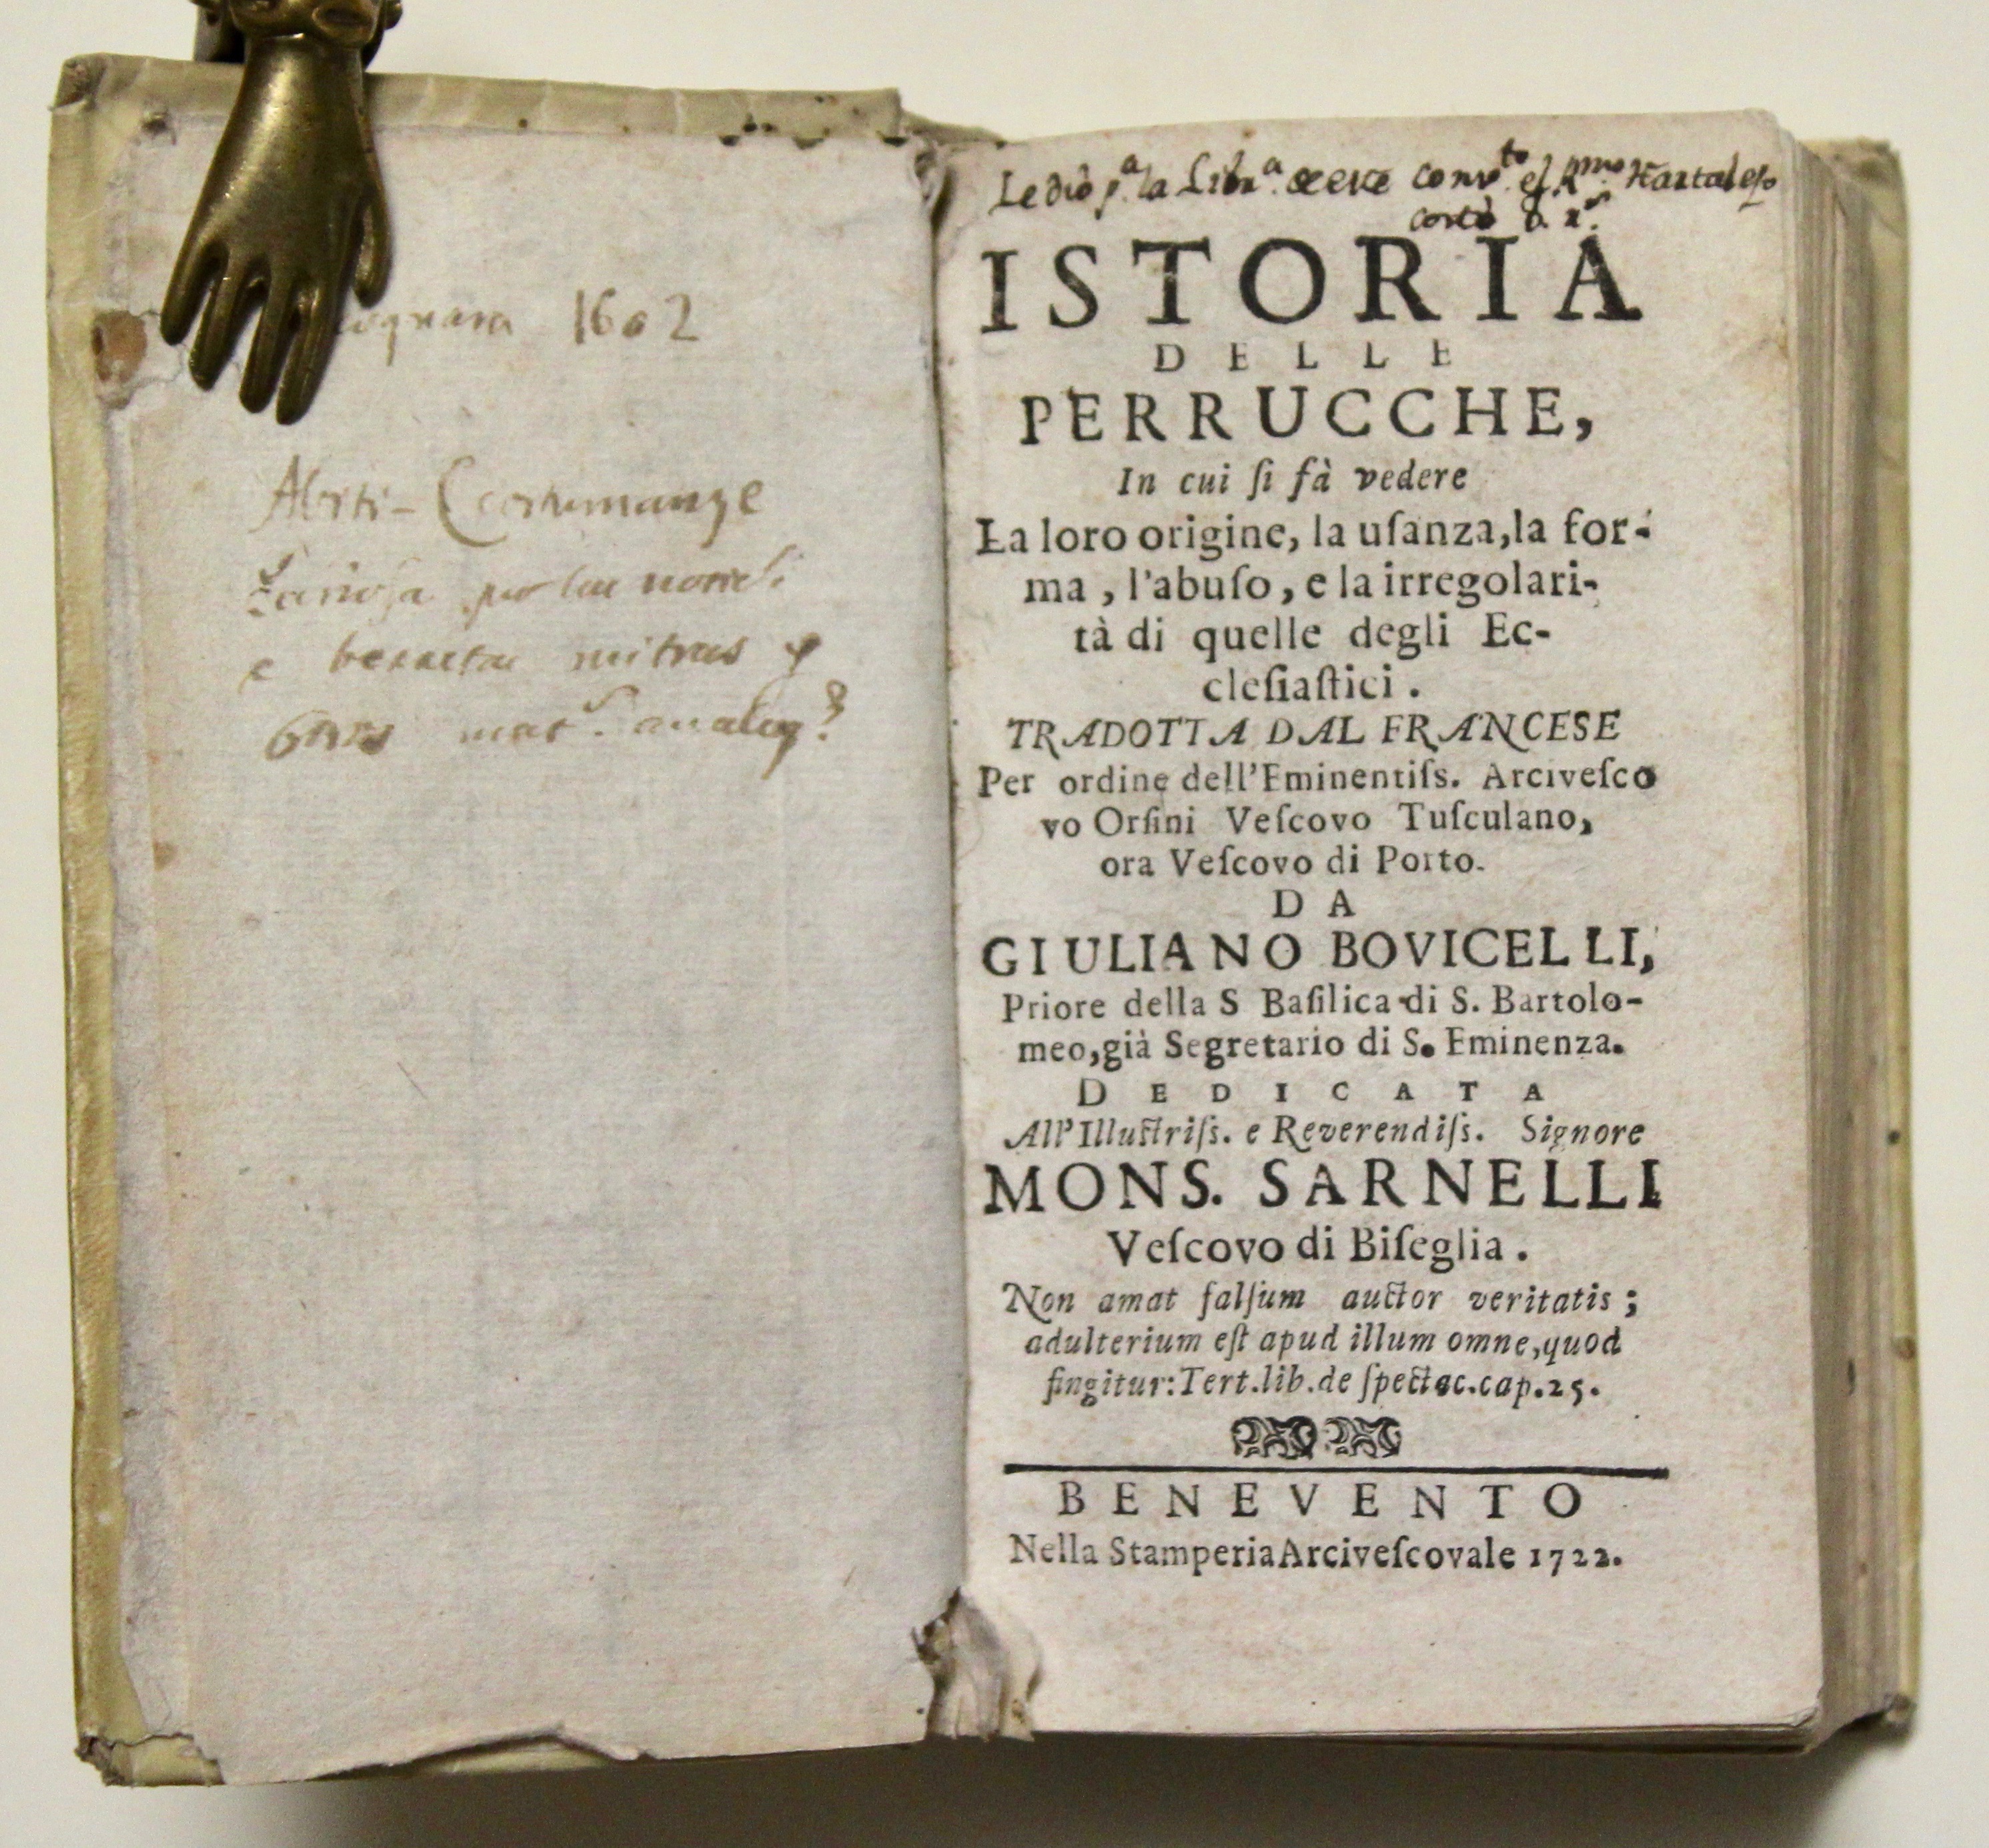 1602
Abiti - Costumanze
mitras
Le dió pª la Librª de este convto el Rmo
costó
ISTORIA
DELLE
PERRUCCHE,
In cui ſi fà vedere
La loro origine, la uſanza, la for-
ma, l'abuſo, e la irregolari-
tà di quelle degli Ec-
cleſiaſtici.
TRADOTTA DAL FRANCESE
Per ordine dell'Eminentiſs. Arciveſco
vo Orſini Veſcovo Tuſculano,
ora Veſcovo di Porto.
DA
GIULIANO BOVICELLI,
Priore della S Baſilica di S. Bartolo-
meo, già Segretario di S. Eminenza.
DEDICATA
All'Illuſtriſs. e Reverendiſs. Signore
MONS. SARNELLI
Veſcovo di Biſeglia.
Non amat falſum auctor veritatis;
adulterium eſt apud illum omne, quod
fingitur: Tert. lib. de ſpectac. cap. 25.
BENEVENTO
Nella Stamperia Arciveſcovale 1722.